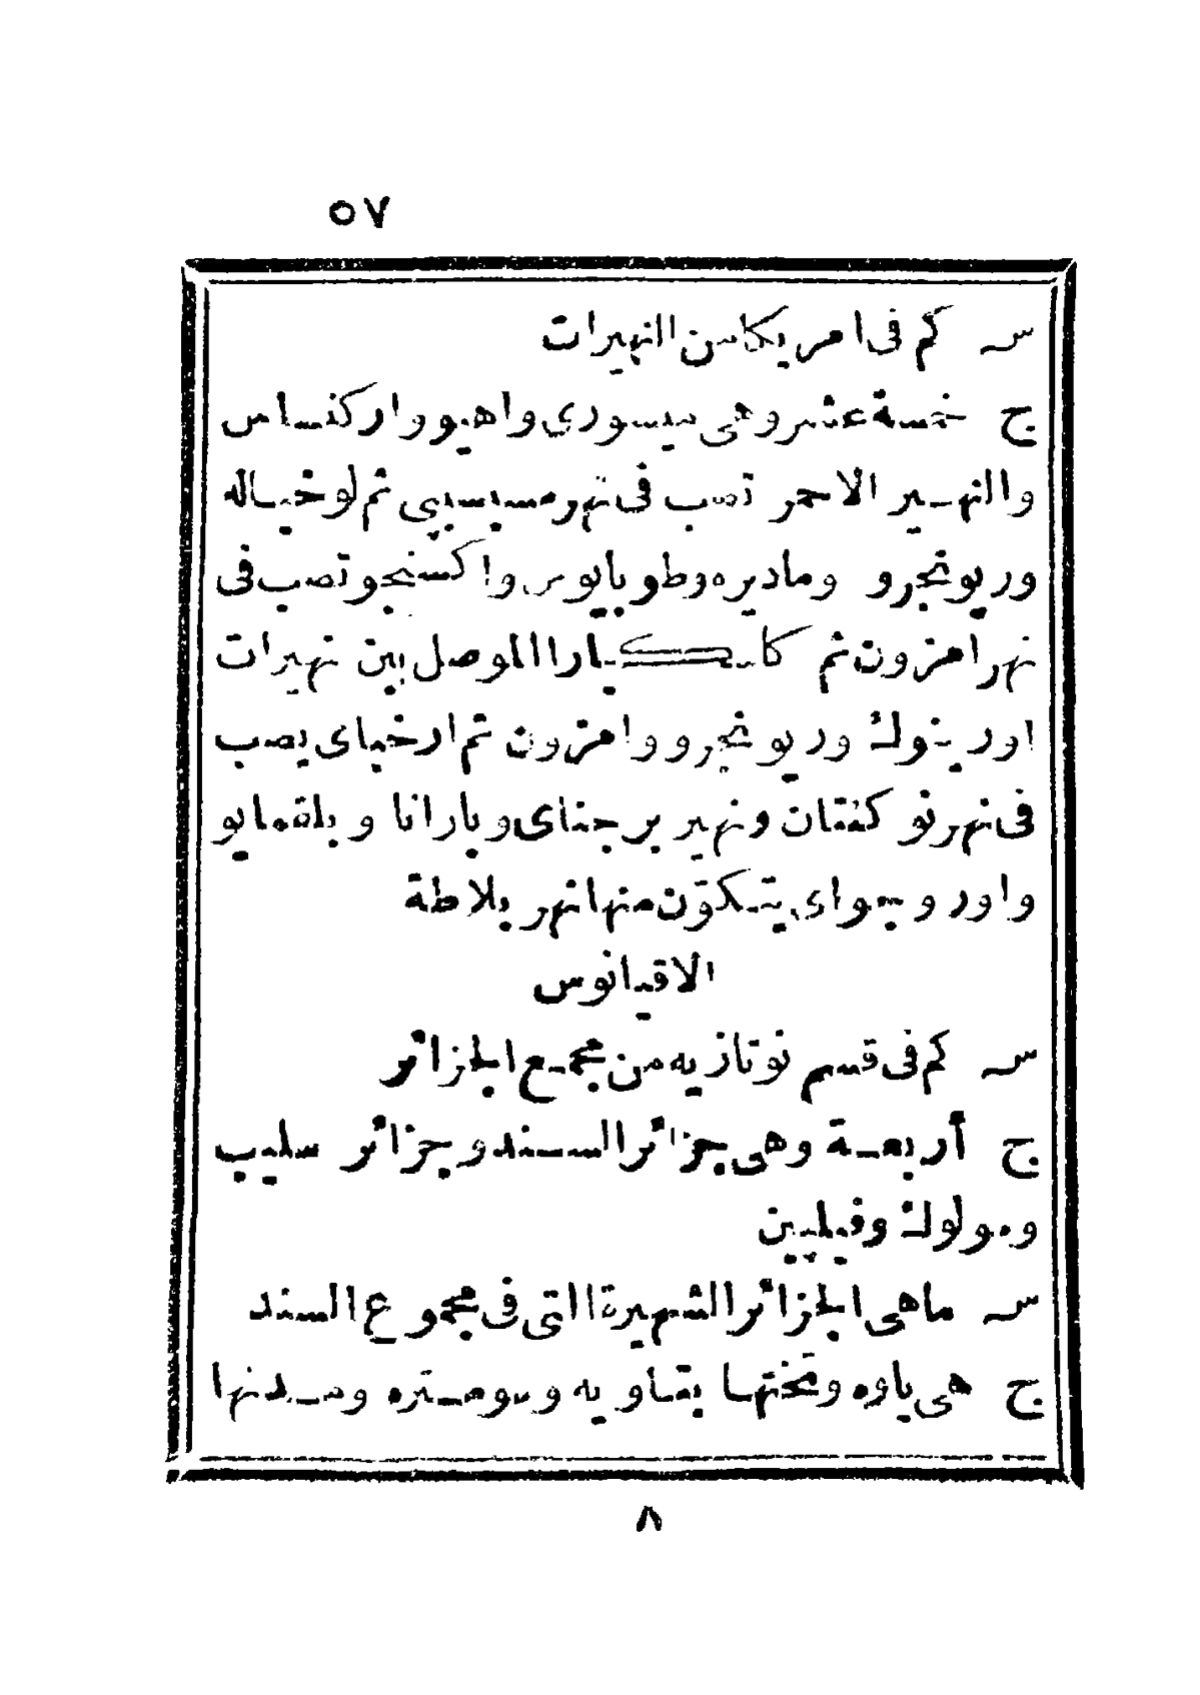 ٥٧
س كم فى امريكا من النهيرات
ج خمسة عشر وهى ميسوري واهيو واركنساس
والنهير الاحمر تصب فى نهر مسيسيپى ثم لوخياله
وريونجرو وماديره وطوبايوس واكسنجو تصب فى
نهر امزون ثم كاسكيارا الموصل بين نهيرات
اورينوك وريونجرو وامزون ثم ارخباى يصب
فى نهر نوكنتان ونهير برجناى وبارانا وبلقمايو
واورويبواى يتكوّن منها نهر بلاطة
الاقيانوس
س كم فى قسم نوتازيه من مجمع الجزائر
ج أربعة وهى جزائر السند وجزائر سليب
ومولوك وفيليپين
س ماهى الجزائر الشهيرة التى فى مجموع السند
ج هى ياوه وتختها بتاويه وسومتره ومدنها
٨